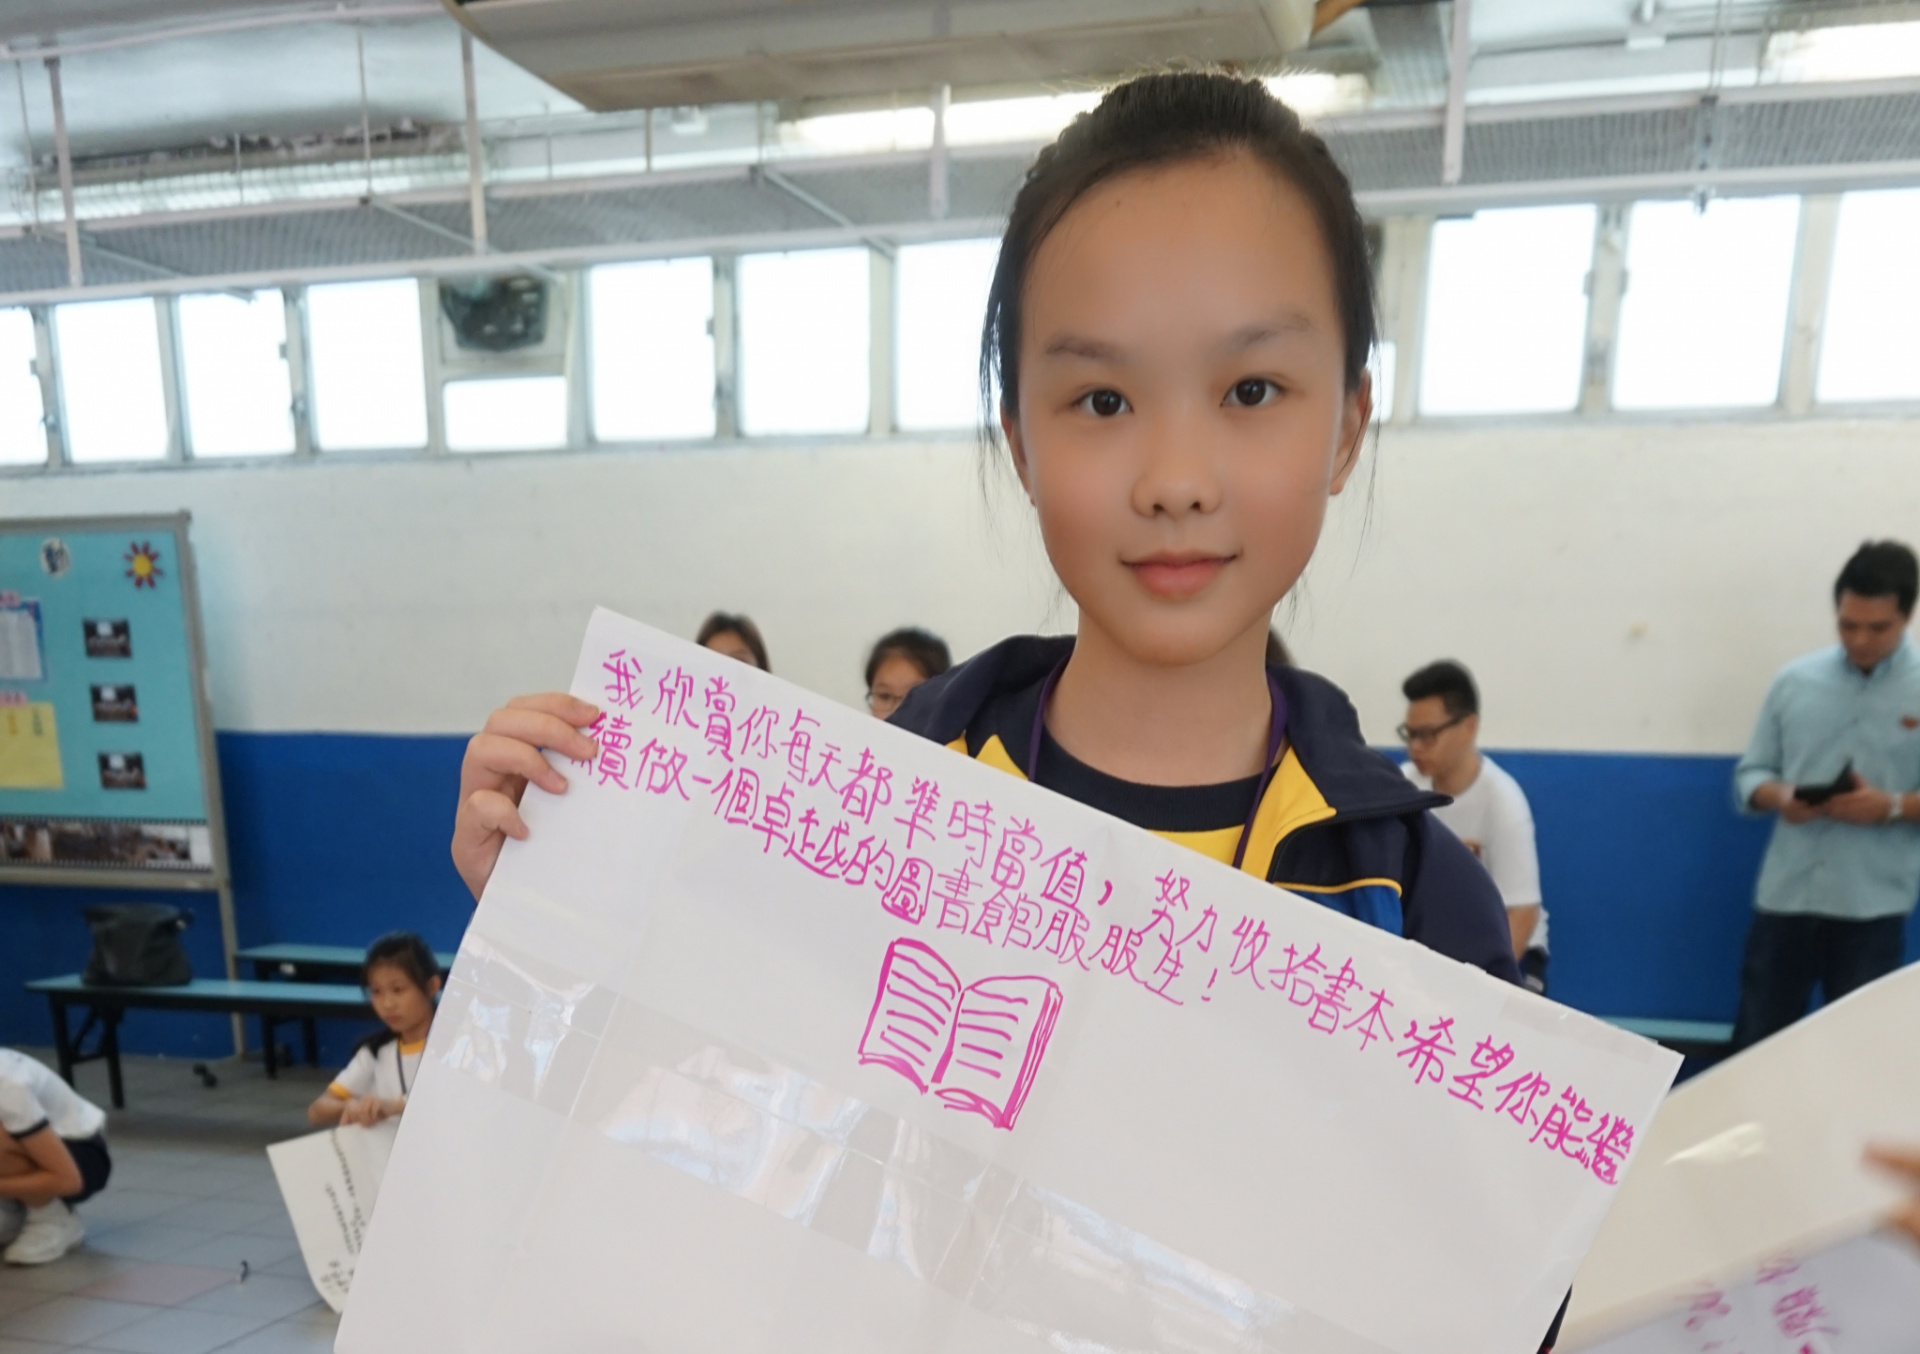 我欣賞你每天都準時當值，努力收拾書本，希望你能繼
續做一個卓越的圖書館服服生！